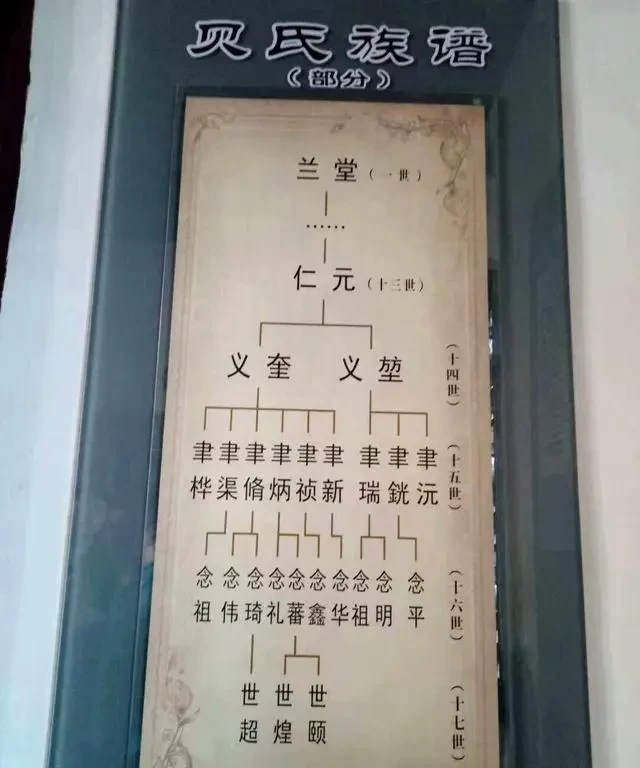 贝氏族谱
（部分）
兰堂（一世）
……
仁元（十三世）
义奎 义堃 （十四世）
聿桦 聿渠 聿脩 聿炳 聿祯 聿新 聿瑞 聿銚 聿沅 （十五世）
念祖 念伟 念琦 念礼 念蕃 念鑫 念华 念祖 念明 念平 （十六世）
世超 世煌 世颐 （十七世）